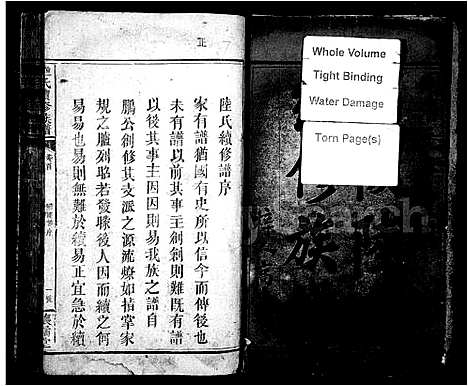 陸氏續修譜序
家有譜猶國有史所以信今而傳後也
未有譜以前其事主創創則難既有譜
以後其事主因因則易我族之譜自
鵬公創修其支派之源流燎如指掌家
規之臚列昭若發矇後人因而續之何
易易也易則無難於續易正宜急於續
正
氏續修族譜
卷首
Whole Volume
Tight Binding
Water Damage
Torn Page(s)
修族